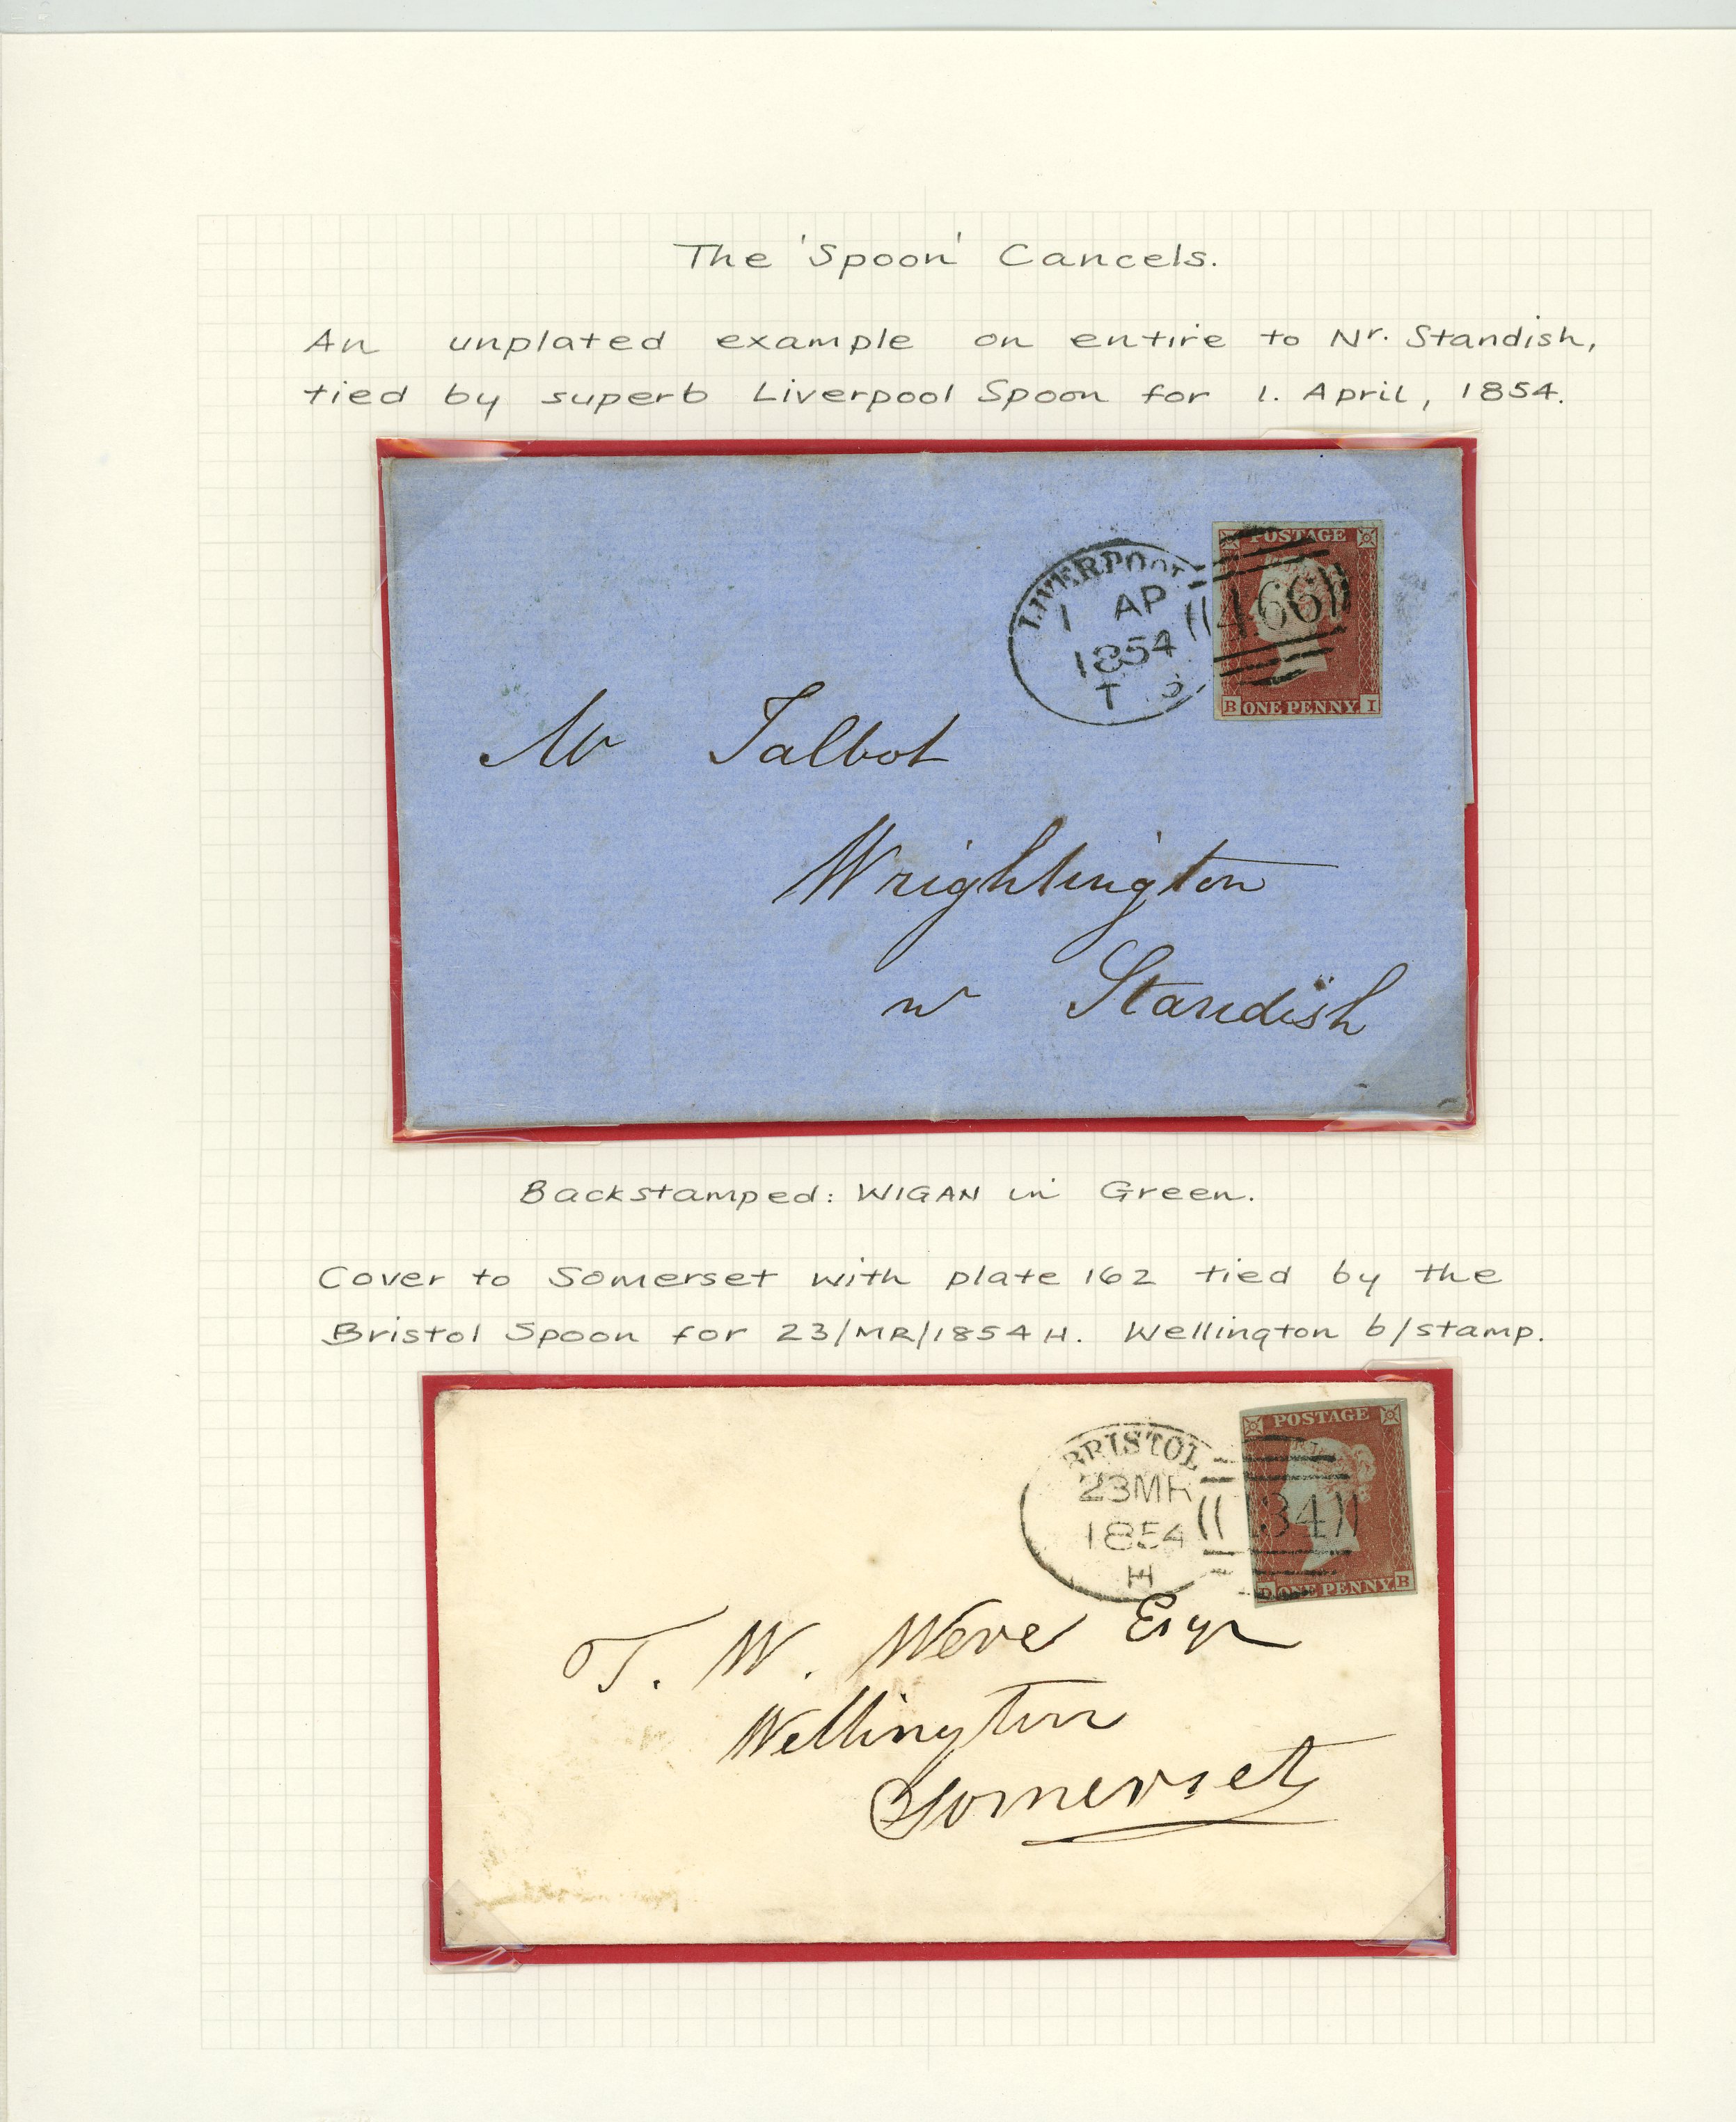 The 'Spoon' Cancels.
An unplated example on entire to Nr. Standish,
tied by superb Liverpool Spoon for 1. April, 1854.
LIVERPOOL
1 AP
1854
T
466
POSTAGE
B ONE PENNY I
Mr Talbot
Wrightington
nr Standish
Backstamped: WIGAN in Green.
Cover to Somerset with plate 162 tied by the
Bristol Spoon for 23/MR/1854 H. Wellington b/stamp.
BRISTOL
23MR
1854
H
134
POSTAGE
D ONE PENNY B
T. W. Were Esqr
Wellington
Somerset